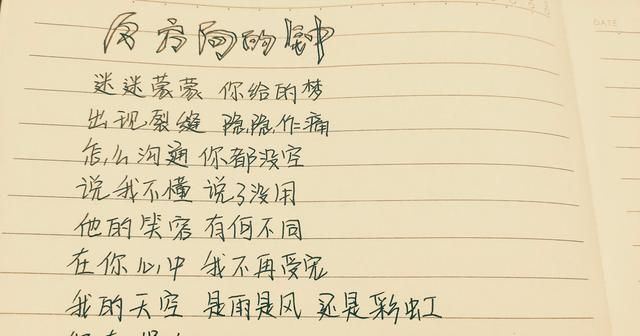 反方向的钟
DATE
迷迷蒙蒙 你给的梦
出现裂缝 隐隐作痛
怎么沟通 你都没空
说我不懂 说了没用
他的笑容 有何不同
在你心中 我不再受宠
我的天空 是雨是风 还是彩虹